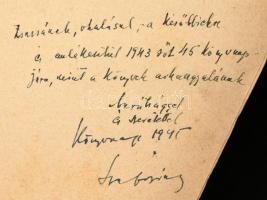 Zsuzsának, okulásul, a későbbiekre
és emlékeztetőül 1943 sőt 45 könyvnap-
jára, mint a Könyvek arkangyalának
barátsággal
és szeretettel
Könyvnap 1945